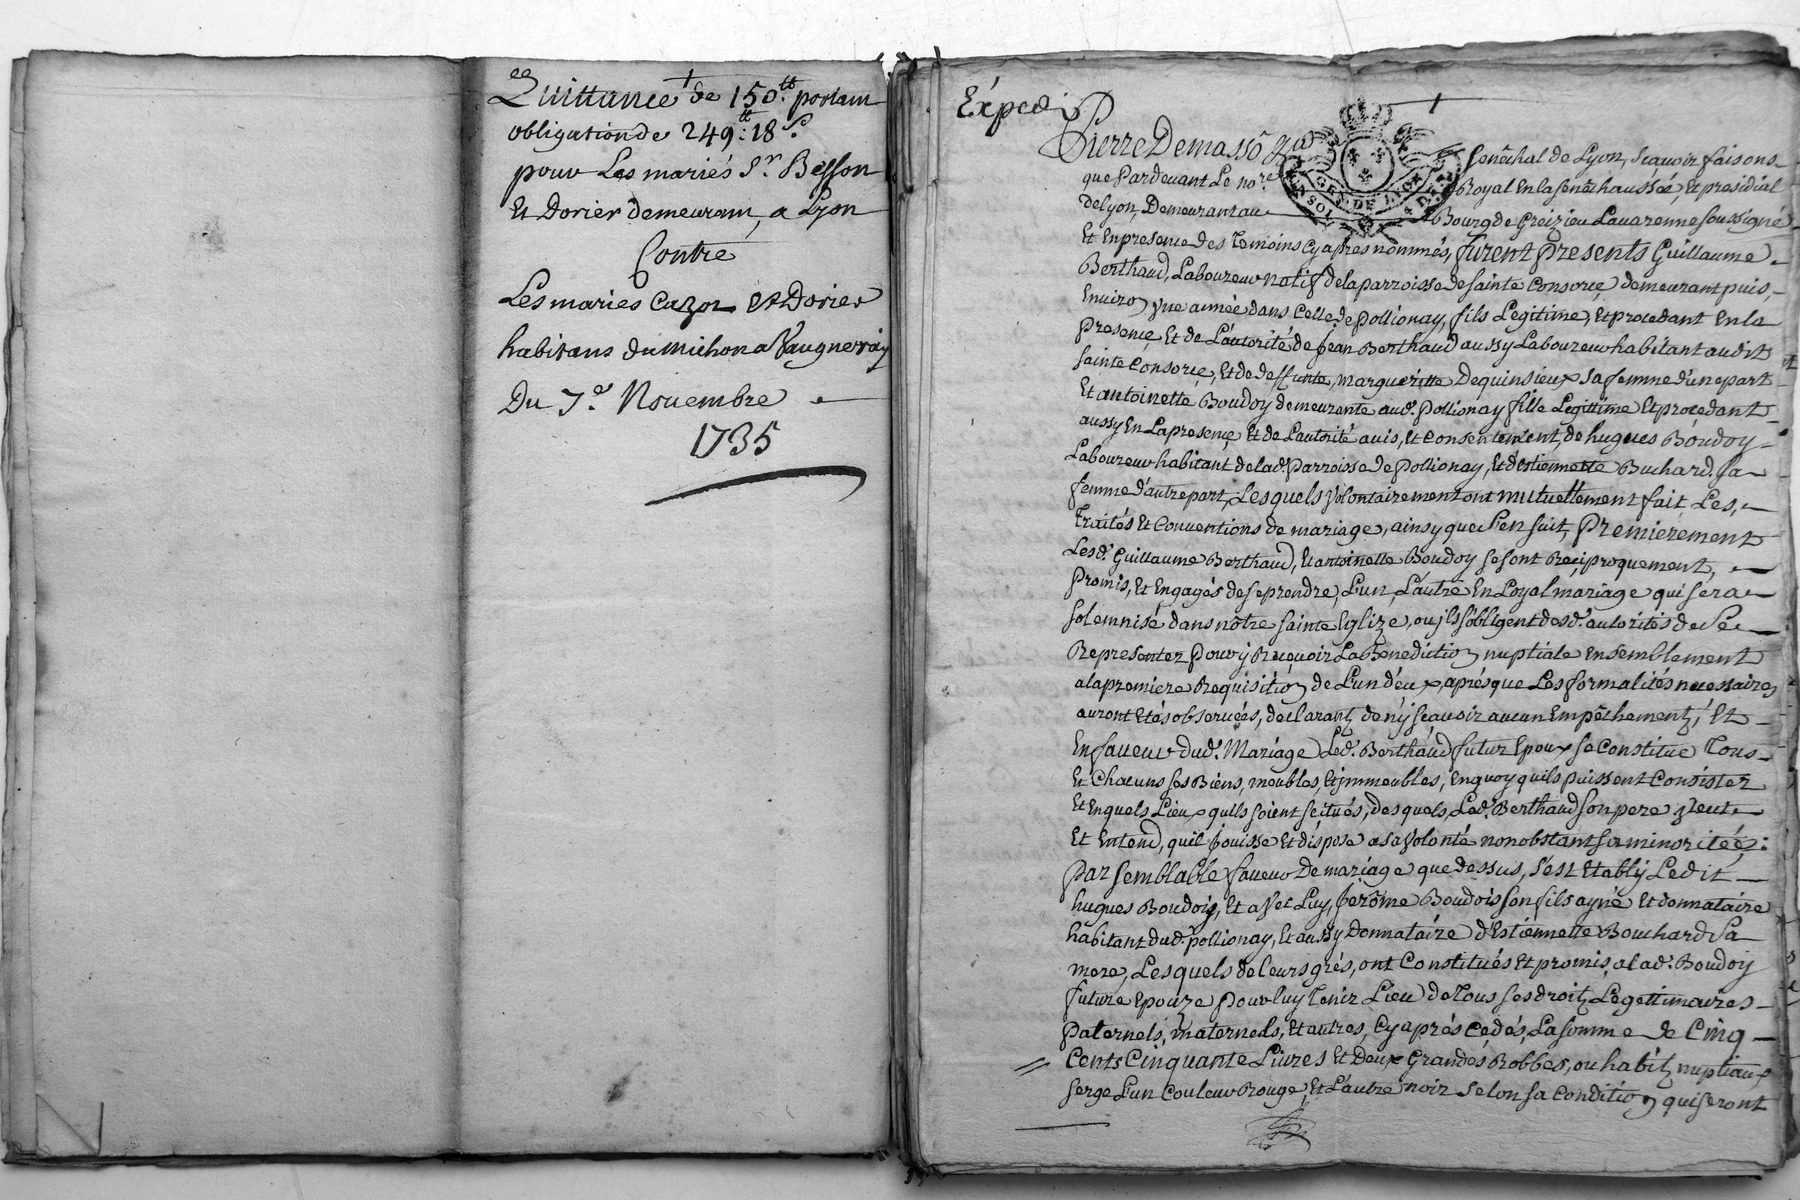 Quittance de 150.tt portant
obligation de 249.tt : 18 s.
pour Les mariés Sr. Besson
Et Dorier demeurant a Lyon
Contre
Les maries Cazot et Dorier
habitans du Michon a Vaugneray
Du 7e. Novembre
1735
Expedié
Pierre Demasso Senéchal de Lyon, scavoir faisons
que Pardevant Le nore. Royal En la senéchaussée, Et presidial
de Lyon, Demeurant au Bourg de Greizieu Lavarenne soussigné
Et En presence des Temoins Cy apres nommés, furent Presents Guillaume
Berthaud, Laboureur natif de la parroisse de sainte Consorce, demeurant puis,
Enviro͂ Une année dans Celle de Pollionay, fils Legitime, Et procedant En la
presence, Et de L'autorité de Jean Berthaud aussy Laboureur habitant audit
sainte Consorce, Et de deffunte Margueritte Dequinsieux sa femme d'une part
Et antoinette Boudoy demeurante aud. Pollionay fille Legittime Et procedant
aussy En La presence, Et de L'autorité avis, Et Consentement, de hugues Boudoy
Laboureur habitant de lad. Parroisse de Pollionay, Et d'estiennette Buchard. sa
femme d'autre part, Lesquels Volontairement ont mutuellement fait, Les,
Traités Et Conventions de mariage, ainsy que s'en suit, Premierement
Lesd. Guillaume Berthaud, Et antoinette Boudoy se sont Reciproquement,
Promis, Et Engagés de se prendre, L'un, L'autre En Loyal mariage qui sera
solemnisé dans nôtre sainte Eglize, ou jls s'obligent desd. autorités de Se
Representer Pour y Recevoir La Benedictio͂ nuptiale Ensemblement
a la premiere Requisitio͂ de L'un d'eux, aprés que Les formalités necessaires
auront Etés observées, declarant de n'y scavoir aucun Empêchement, Et
En faveur dud. Mariage Led. Berthaud futur Epoux se Constitue Tous
Et Chacuns ses Biens, meubles, Et jmmeubles, En quoy quils puissent Consister
Et En quels Lieux quils soient scitués, desquels, Led. Berthaud son pere Veut
Et Entend, quil jouisse Et dispose a sa Volonté nonobstant sa minorité;
Par semblable faveur De mariage que dessus, s'est Etably Ledit
hugues Boudoy, Et avec Luy, Jerôme Boudois son fils ayné Et donnataire
habitant dud. pollionay, Et aussy Donnataire d'Estiennette Bouchard Sa
mere, Lesquels de Leurs grés, ont Constitués Et promis, a lad. Boudoy
future Epouze pour luy Tenir Lieu de Tous ses droits Legittimaires
Paternels, maternels, Et autres, Cy aprés Cedés, La somme de Cinq
Cents Cinquante Livres Et Deux Grandes Robbes, ou habits nuptiaux
serge L'un Couleur Rouge, Et L'autre noir selon sa Conditio͂ qui seront